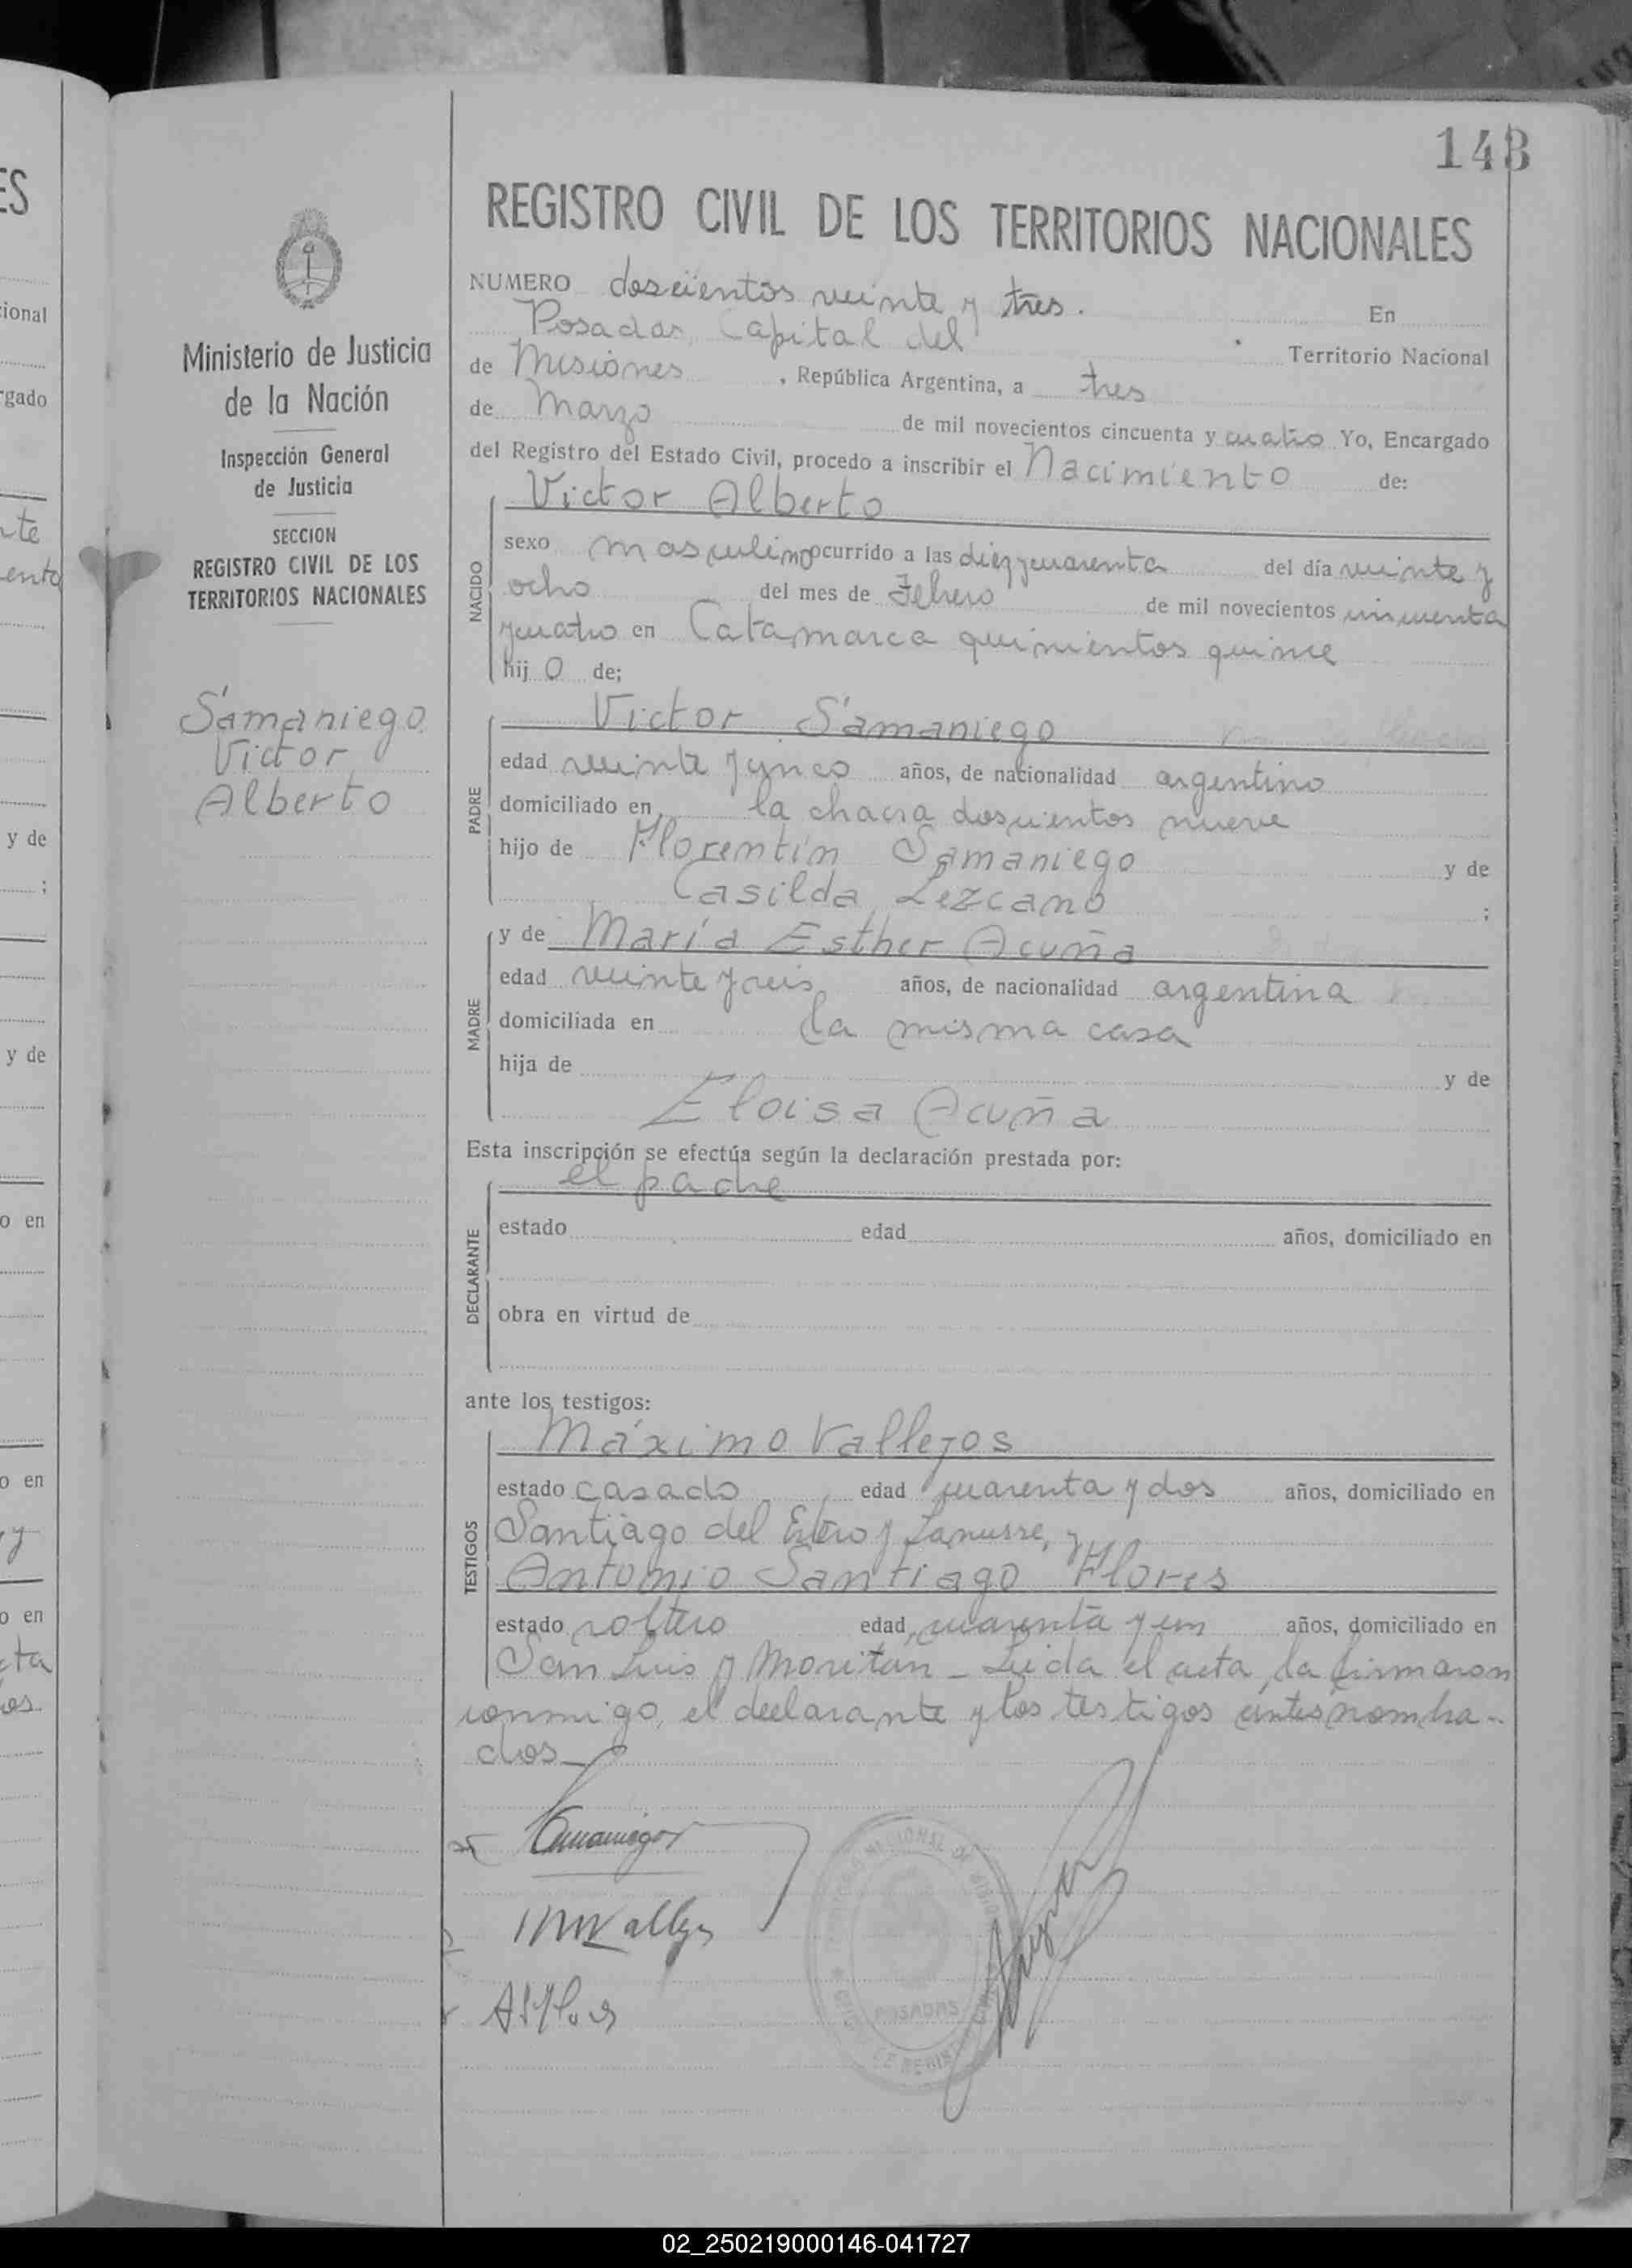 148
REGISTRO CIVIL DE LOS TERRITORIOS NACIONALES
NUMERO doscientos veinte y tres. En
Posadas, Capital del Territorio Nacional
de Misiones, República Argentina, a tres
de Marzo de mil novecientos cincuenta y cuatro Yo, Encargado
del Registro del Estado Civil, procedo a inscribir el Nacimiento de:
Victor Alberto
NACIDO
sexo masculino ocurrido a las diez y cuarenta del día veinte y
ocho del mes de Febrero de mil novecientos cincuenta
y cuatro en Catamarca quinientos quince
hij o de;
Victor Samaniego
PADRE
edad veinte y cinco años, de nacionalidad argentino
domiciliado en la chacra doscientos nueve
hijo de Florentín Samaniego y de
Casilda Lezcano ;
y de María Esther Acuña
MADRE
edad veinte y seis años, de nacionalidad argentina
domiciliada en la misma casa
hija de y de
Eloisa Acuña
Esta inscripción se efectúa según la declaración prestada por:
el padre
DECLARANTE
estado edad años, domiciliado en
obra en virtud de
ante los testigos:
Máximo Vallejos
TESTIGOS
estado casado edad cuarenta y dos años, domiciliado en
Santiago del Estero y Lanusse, y
Antonio Santiago Flores
estado soltero edad cuarenta y un años, domiciliado en
San Luis y Moritan - Leída el acta, la firmaron
conmigo, el declarante y los testigos antes nombra-
dos
Samaniego
MVallejos
ASFlores
POSADAS
Ministerio de Justicia
de la Nación
Inspección General
de Justicia
SECCION
REGISTRO CIVIL DE LOS
TERRITORIOS NACIONALES
Samaniego
Victor
Alberto
02_250219000146-041727